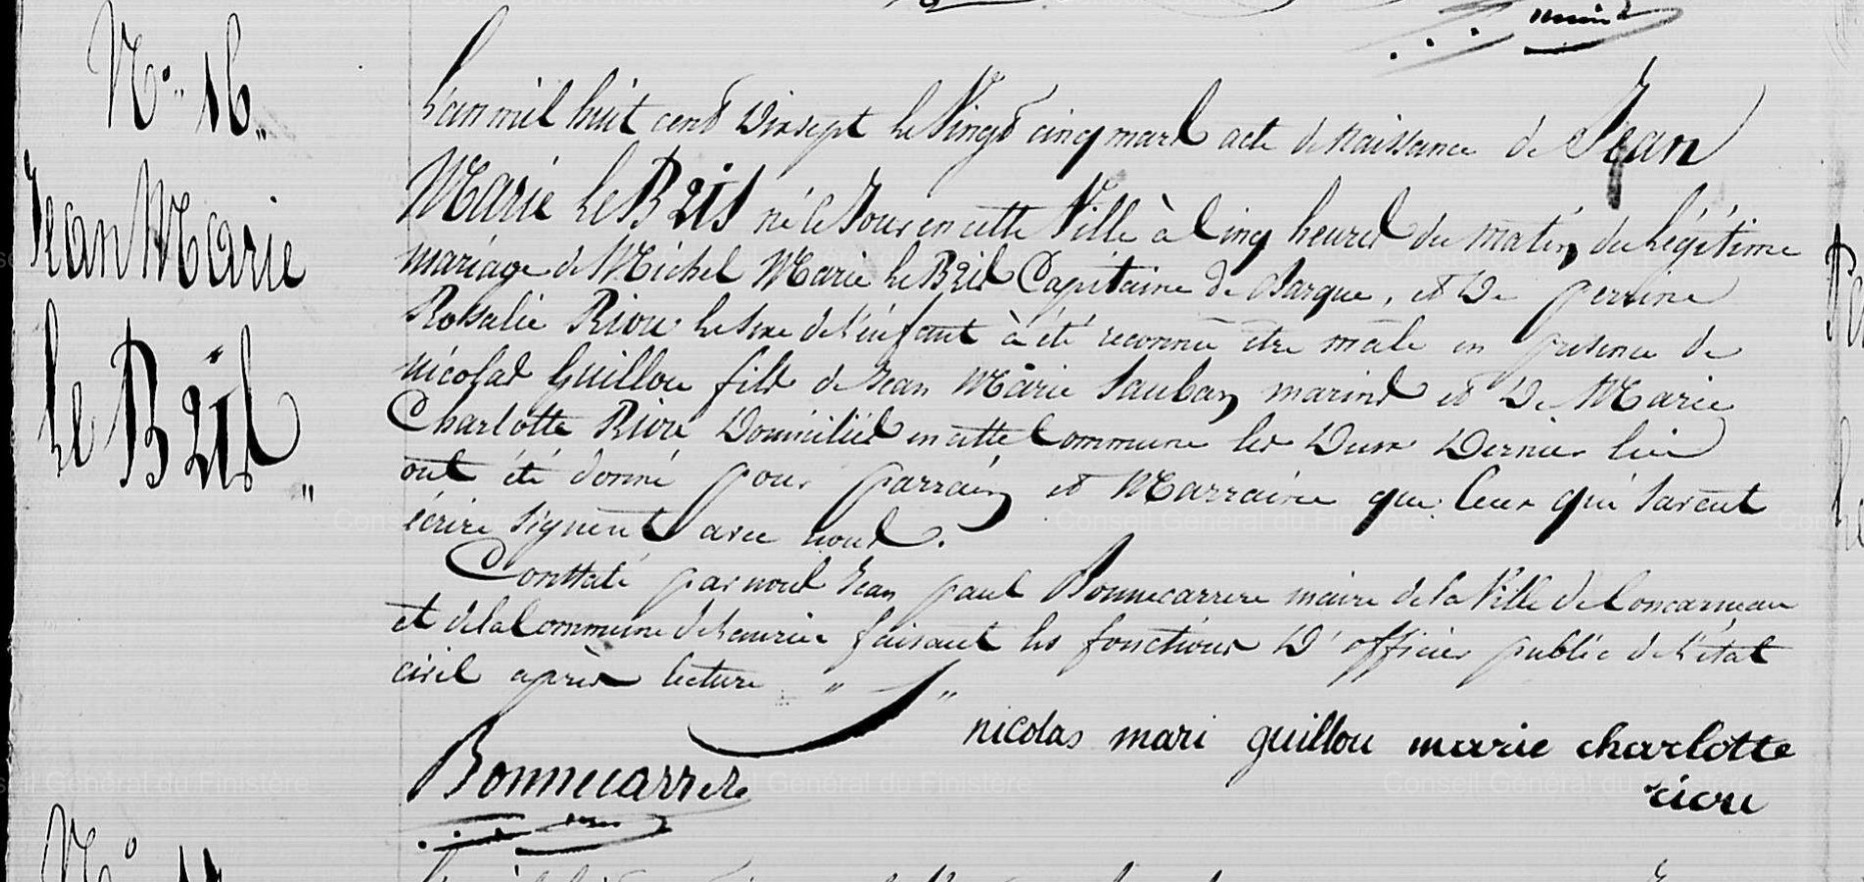 N° 16
Jean Marie
le Bris
L'an mil huit cent Dix sept le Vingt cinq mars acte de naissance de Jean
Marie le Bris né ce Jour en cette Ville à Cinq heures du matin, du légitime
mariage de Michel Marie le Bris Capitaine de Barque, et De perrine
Rosalie Riou le sexe de l'enfant à été reconnu être mâle en présence de
nicolas Guillou fils de Jean Marie Sauban marins et De Marie
Charlotte Riou Domiciliés en cette Commune les Deux Dernier lieu
ont été donné pour parrain et Marraine que Ceux qui savent
écrire signent avec nous.
Constaté par nous Jean paul Bonnecarrere maire de la Ville de Concarneau
et de la Commune de faisant les fonctions D'officier public de l'état
civil après lecture
nicolas mari guillou marie charlotte
riou
Bonnecarrere